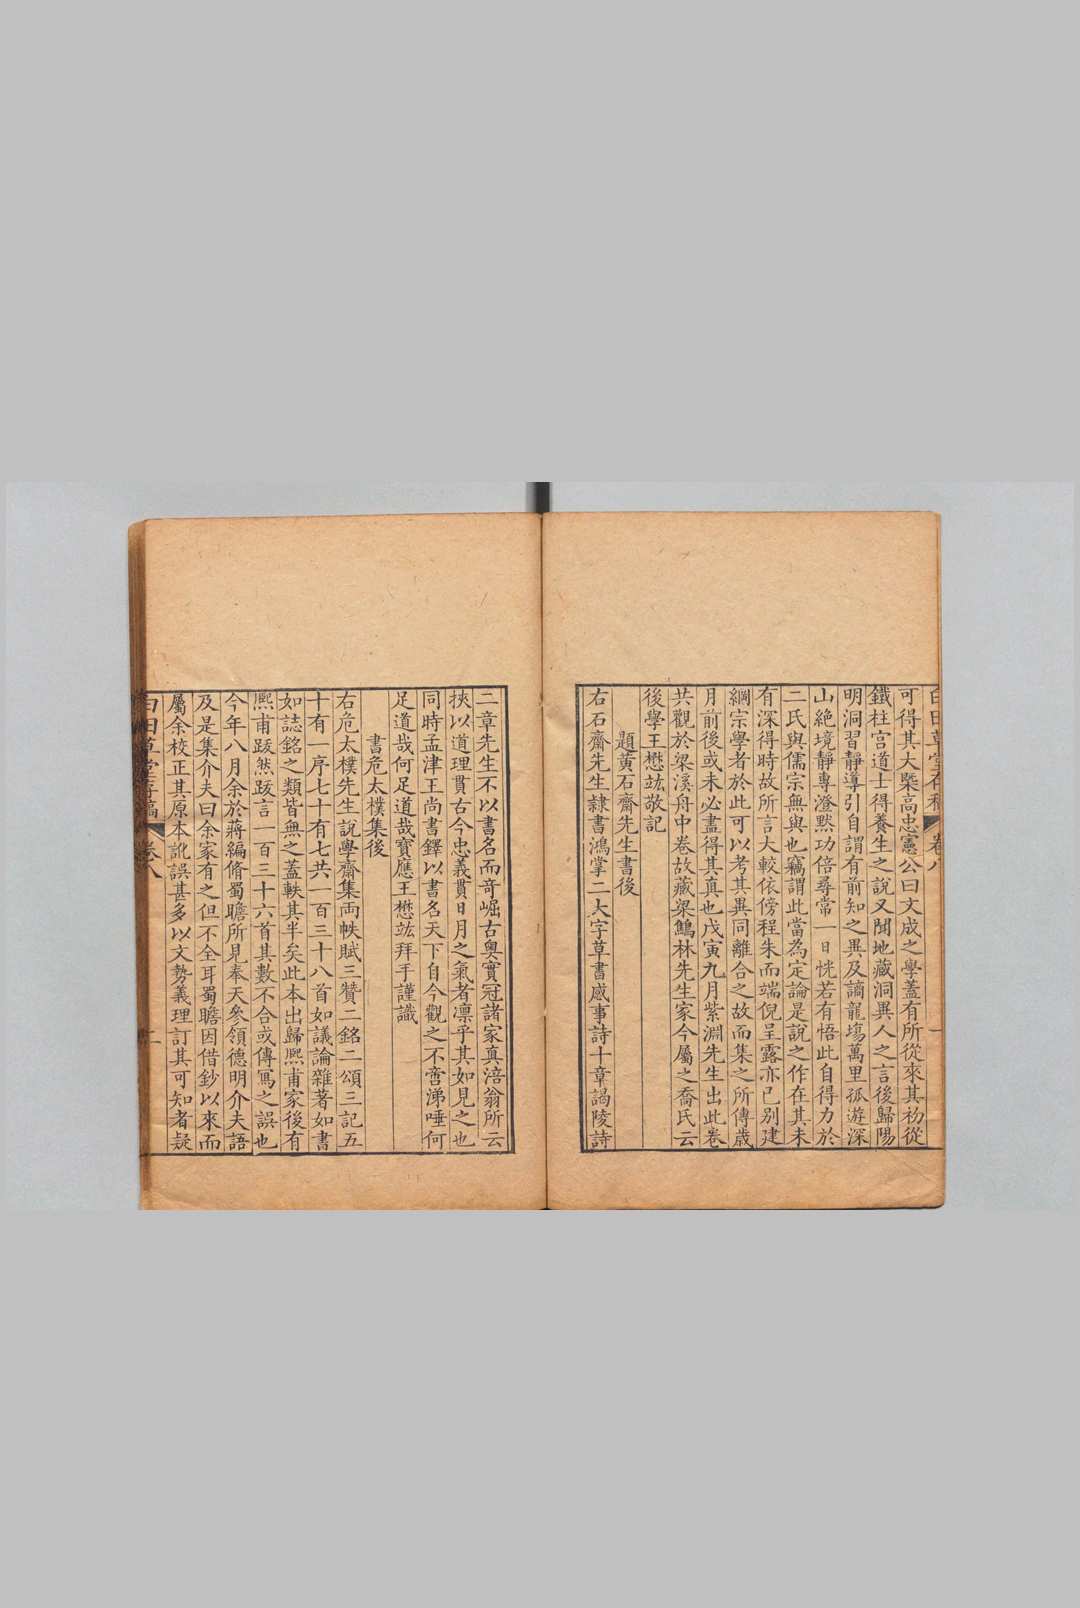 白田草堂存稿 卷八 一
可得其大槩高忠憲公曰文成之學蓋有所從來其初從
鐵柱宫道士得養生之說又聞地藏洞異人之言後歸陽
明洞習靜導引自謂有前知之異及謫龍塲萬里孤遊深
山絶境靜專澄黙功倍尋常一日恍若有悟此自得力於
二氏與儒宗無與也竊謂此當為定論是說之作在其未
有深得時故所言大較依傍程朱而端倪呈露亦已别建
綱宗學者於此可以考其異同離合之故而集之所傳歳
月前後或未必盡得其真也戊寅九月紫淵先生出此卷
共觀於梁溪舟中卷故藏梁鷦林先生家今屬之喬氏云
後學王懋竑敬記
題黄石齋先生書後
右石齋先生隸書鴻掌二大字草書感事詩十章謁陵詩
二章先生不以書名而竒崛古奥實冠諸家真涪翁所云
挾以道理貫古今忠義貫日月之氣者凛乎其如見之也
同時孟津王尚書鐸以書名天下自今觀之不啻涕唾何
足道哉何足道哉寶應王懋竑拜手謹識
書危太樸集後
右危太樸先生說學齋集兩帙賦三贊二銘二頌三記五
十有一序七十有七共一百三十八首如議論雜著如書
如誌銘之類皆無之蓋軼其半矣此本出歸熙甫家後有
熙甫跋然跋言一百三十六首其數不合或傳寫之誤也
今年八月余於蔣編脩蜀瞻所見奉天叅領德明介夫語
及是集介夫曰余家有之但不全耳蜀瞻因借鈔以來而
屬余校正其原本訛誤甚多以文勢義理訂其可知者疑
白田草堂存稿 卷八 二